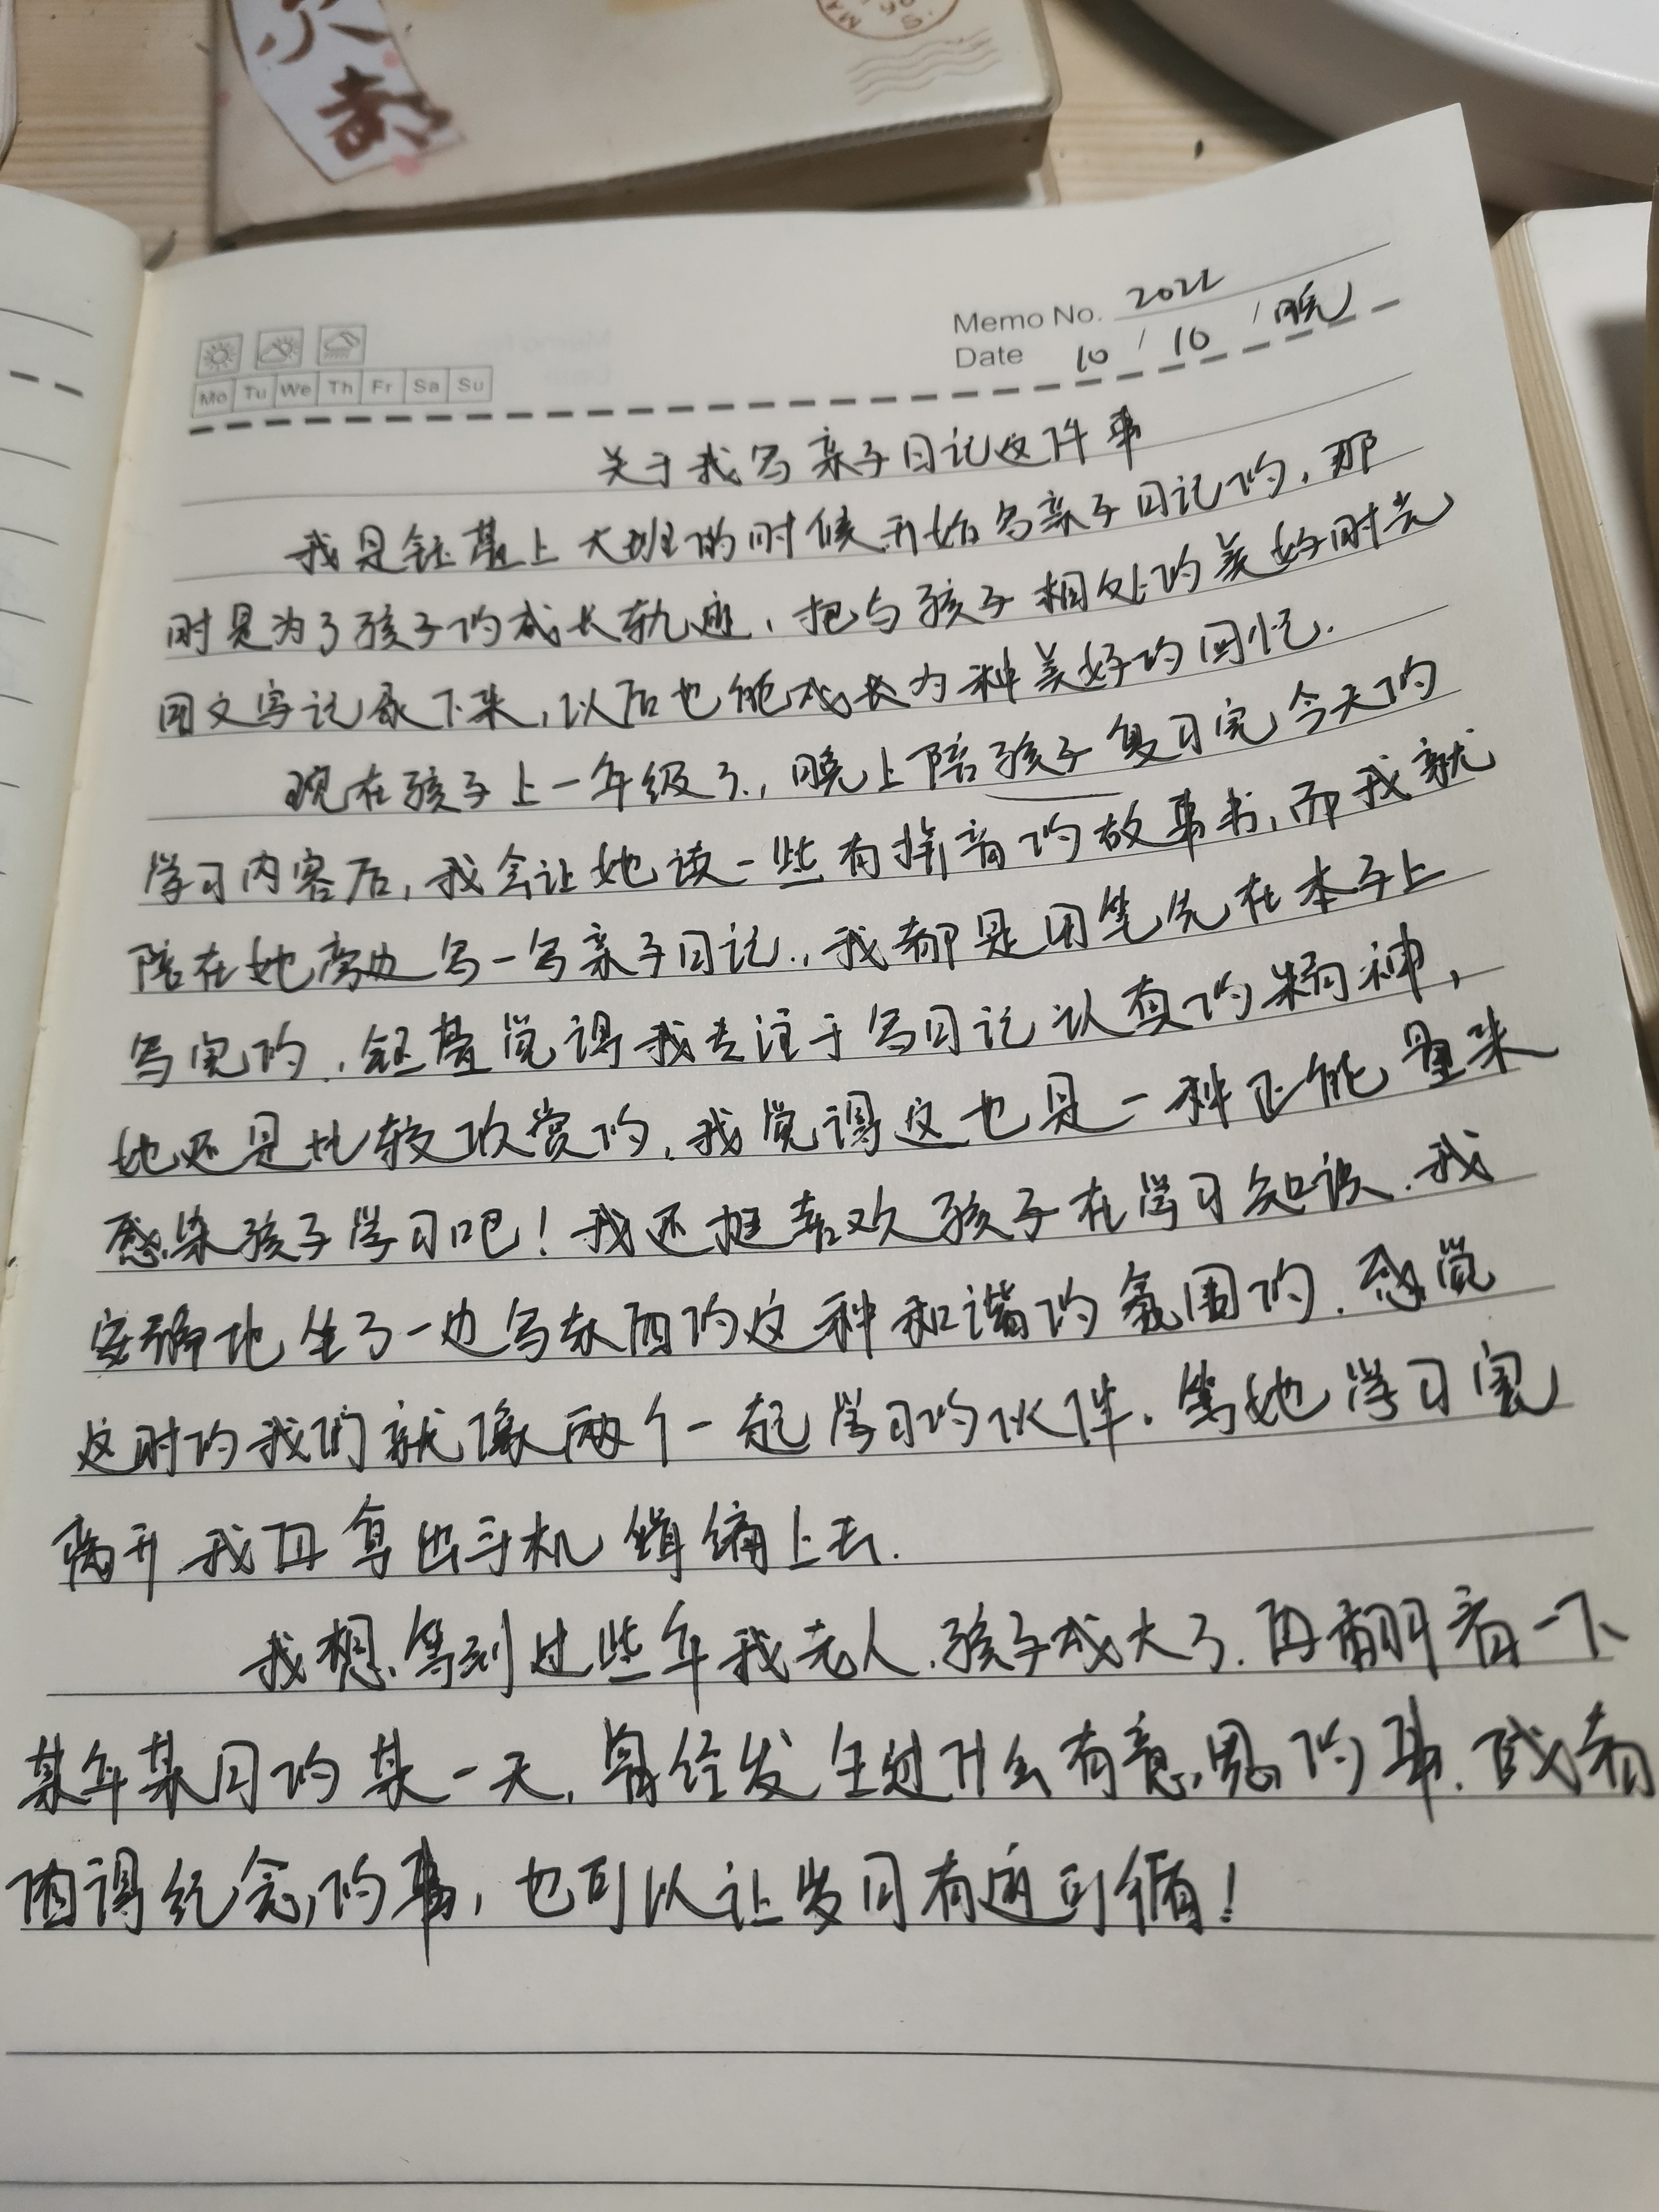 MA
S.
Memo No. 2022
Date 10 / 10 / 晚
Mo Tu We Th Fr Sa Su
关于我写亲子日记这件事
我是钰上大班的时候开始写亲子日记的，那
时是为了孩子的成长轨迹，把与孩子相处的美好时光
用文字记录下来，以后也能成长为种美好的回忆.
现在孩子上一年级了，晚上陪孩子复习完今天的
学习内容后，我会让她读一些有拼音的故事书，而我就
陪在她旁边写一写亲子日记.，我都是用笔先在本子上
写完的，钰觉得我专注于写日记认真的精神，
她还是比较欣赏的，我觉得这也是一种正能量来
感染孩子学习吧！我还挺喜欢孩子在学习知识，我
安静地坐了一边写东西的这种和谐的氛围的，感觉
这时的我们就像两个一起学习的伙伴。等她学习完
离开，我再拿出手机编辑上去.
我想，等到过些年我老人，孩子成大了，再翻看一下
某年某月的某一天，曾经发生过什么有意思的事，或者
值得纪念的事，也可以让岁月有迹可循！